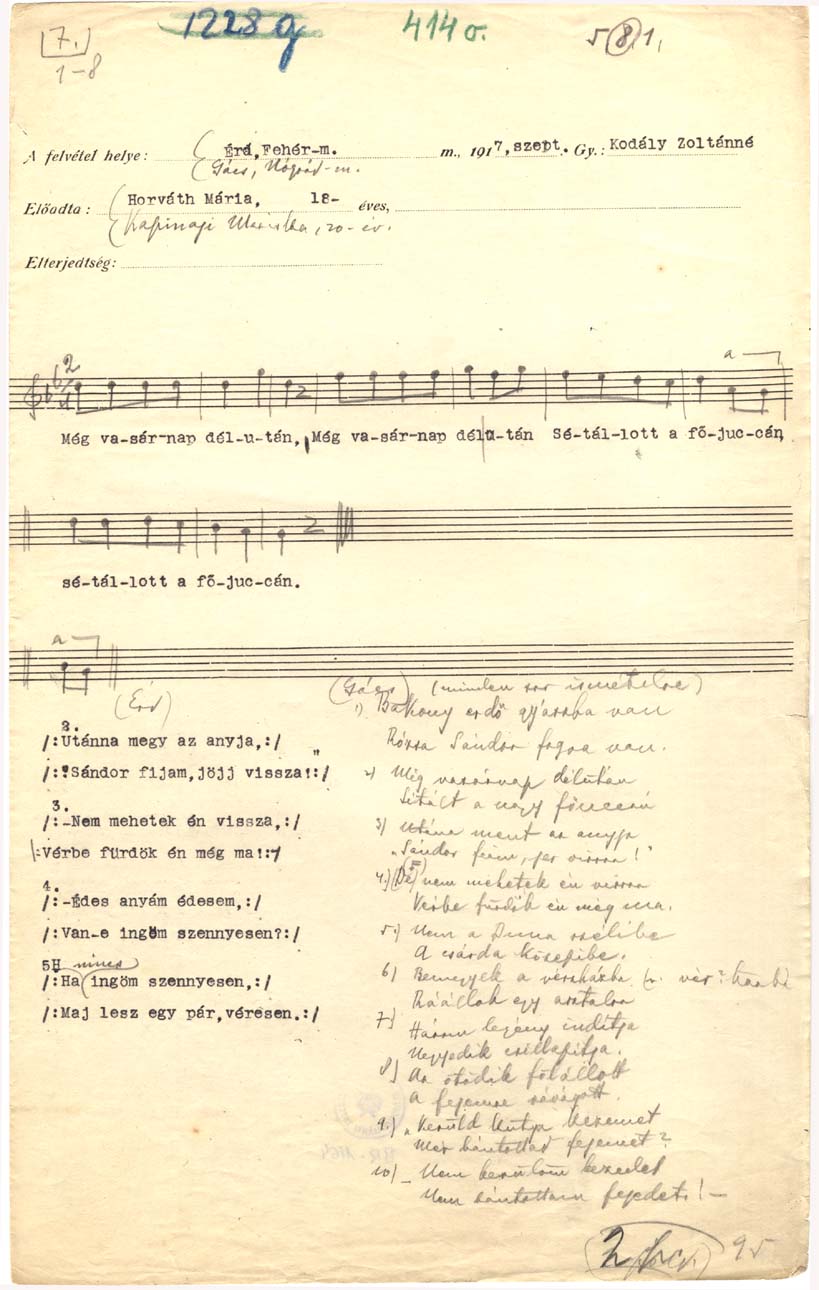 7.
1-8
1228 g
414 o.
5 8 1,
A felvétel helye: Érd, Fehér-m. m., 1917, szept. Gy.: Kodály Zoltánné
Gács, Nógrád-m.
Előadta: Horváth Mária, 18- éves,
Mariska, 20-év.
Elterjedtség:
a
2
4
Még va-sár-nap dél-u-tán, Még va-sár-nap délu-tán Sé-tál-lott a fő-juc-cán,
sé-tál-lott a fő-juc-cán.
a
(Érd)
2.
/:Utánna megy az anyja,:/
/:"Sándor fijam,jöjj vissza!:/ "
3.
/:-Nem mehetek én vissza,:/
/:Vérbe fürdök én még ma!:/
4.
/:-Édes anyám édesem,:/
/:Van-e ingöm szennyesen?:/
5H nincs
/:Ha ingöm szennyesen,:/
/:Maj lesz egy pár,véresen.:/
(Gács) (minden sor ismételve)
1) Bakony erdő gyászba van
Rózsa Sándor fogva van.
2) Még vasárnap délután
Sétált a nagy főuccán
3) Utána ment az anyja
"Sándor fiam, jer vissza!"
4.) (De) nem mehetek én vissza
Vérbe fürdök én még ma.
5.) Nem a Duna szélibe
A csárda közepibe.
6) Bemegyek a vérházba
Ráállok egy asztalra
7.) Három legény indítja
Negyedik csillapítja.
8.) Az ötödik fölállott
A fejemre rávágott.
9.) "Kerüld kutya kezemet
Mér bántottad fejemet?
10) - Nem kerülöm kezedet
Nem bántottam fejedet! -
95